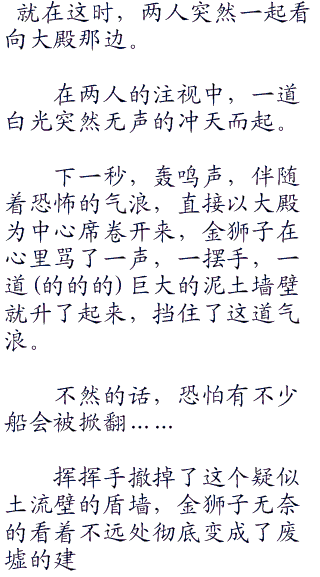 就在这时，两人突然一起看
向大殿那边。
在两人的注视中，一道
白光突然无声的冲天而起。
下一秒，轰鸣声，伴随
着恐怖的气浪，直接以大殿
为中心席卷开来，金狮子在
心里骂了一声，一摆手，一
道(的的的)巨大的泥土墙壁
就升了起来，挡住了这道气
浪。
不然的话，恐怕有不少
船会被掀翻……
挥挥手撤掉了这个疑似
土流壁的盾墙，金狮子无奈
的看着不远处彻底变成了废
墟的建